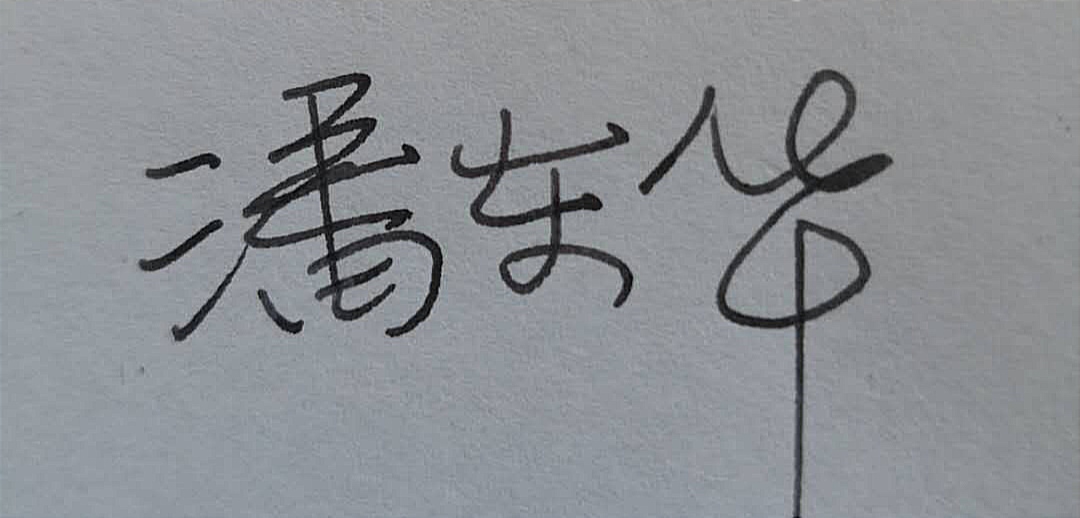 潘东华